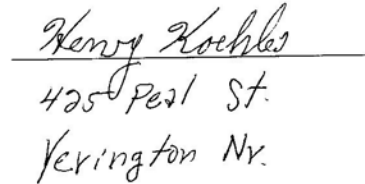 Henry Koehler
425 Peal St.
Yerington Nv.